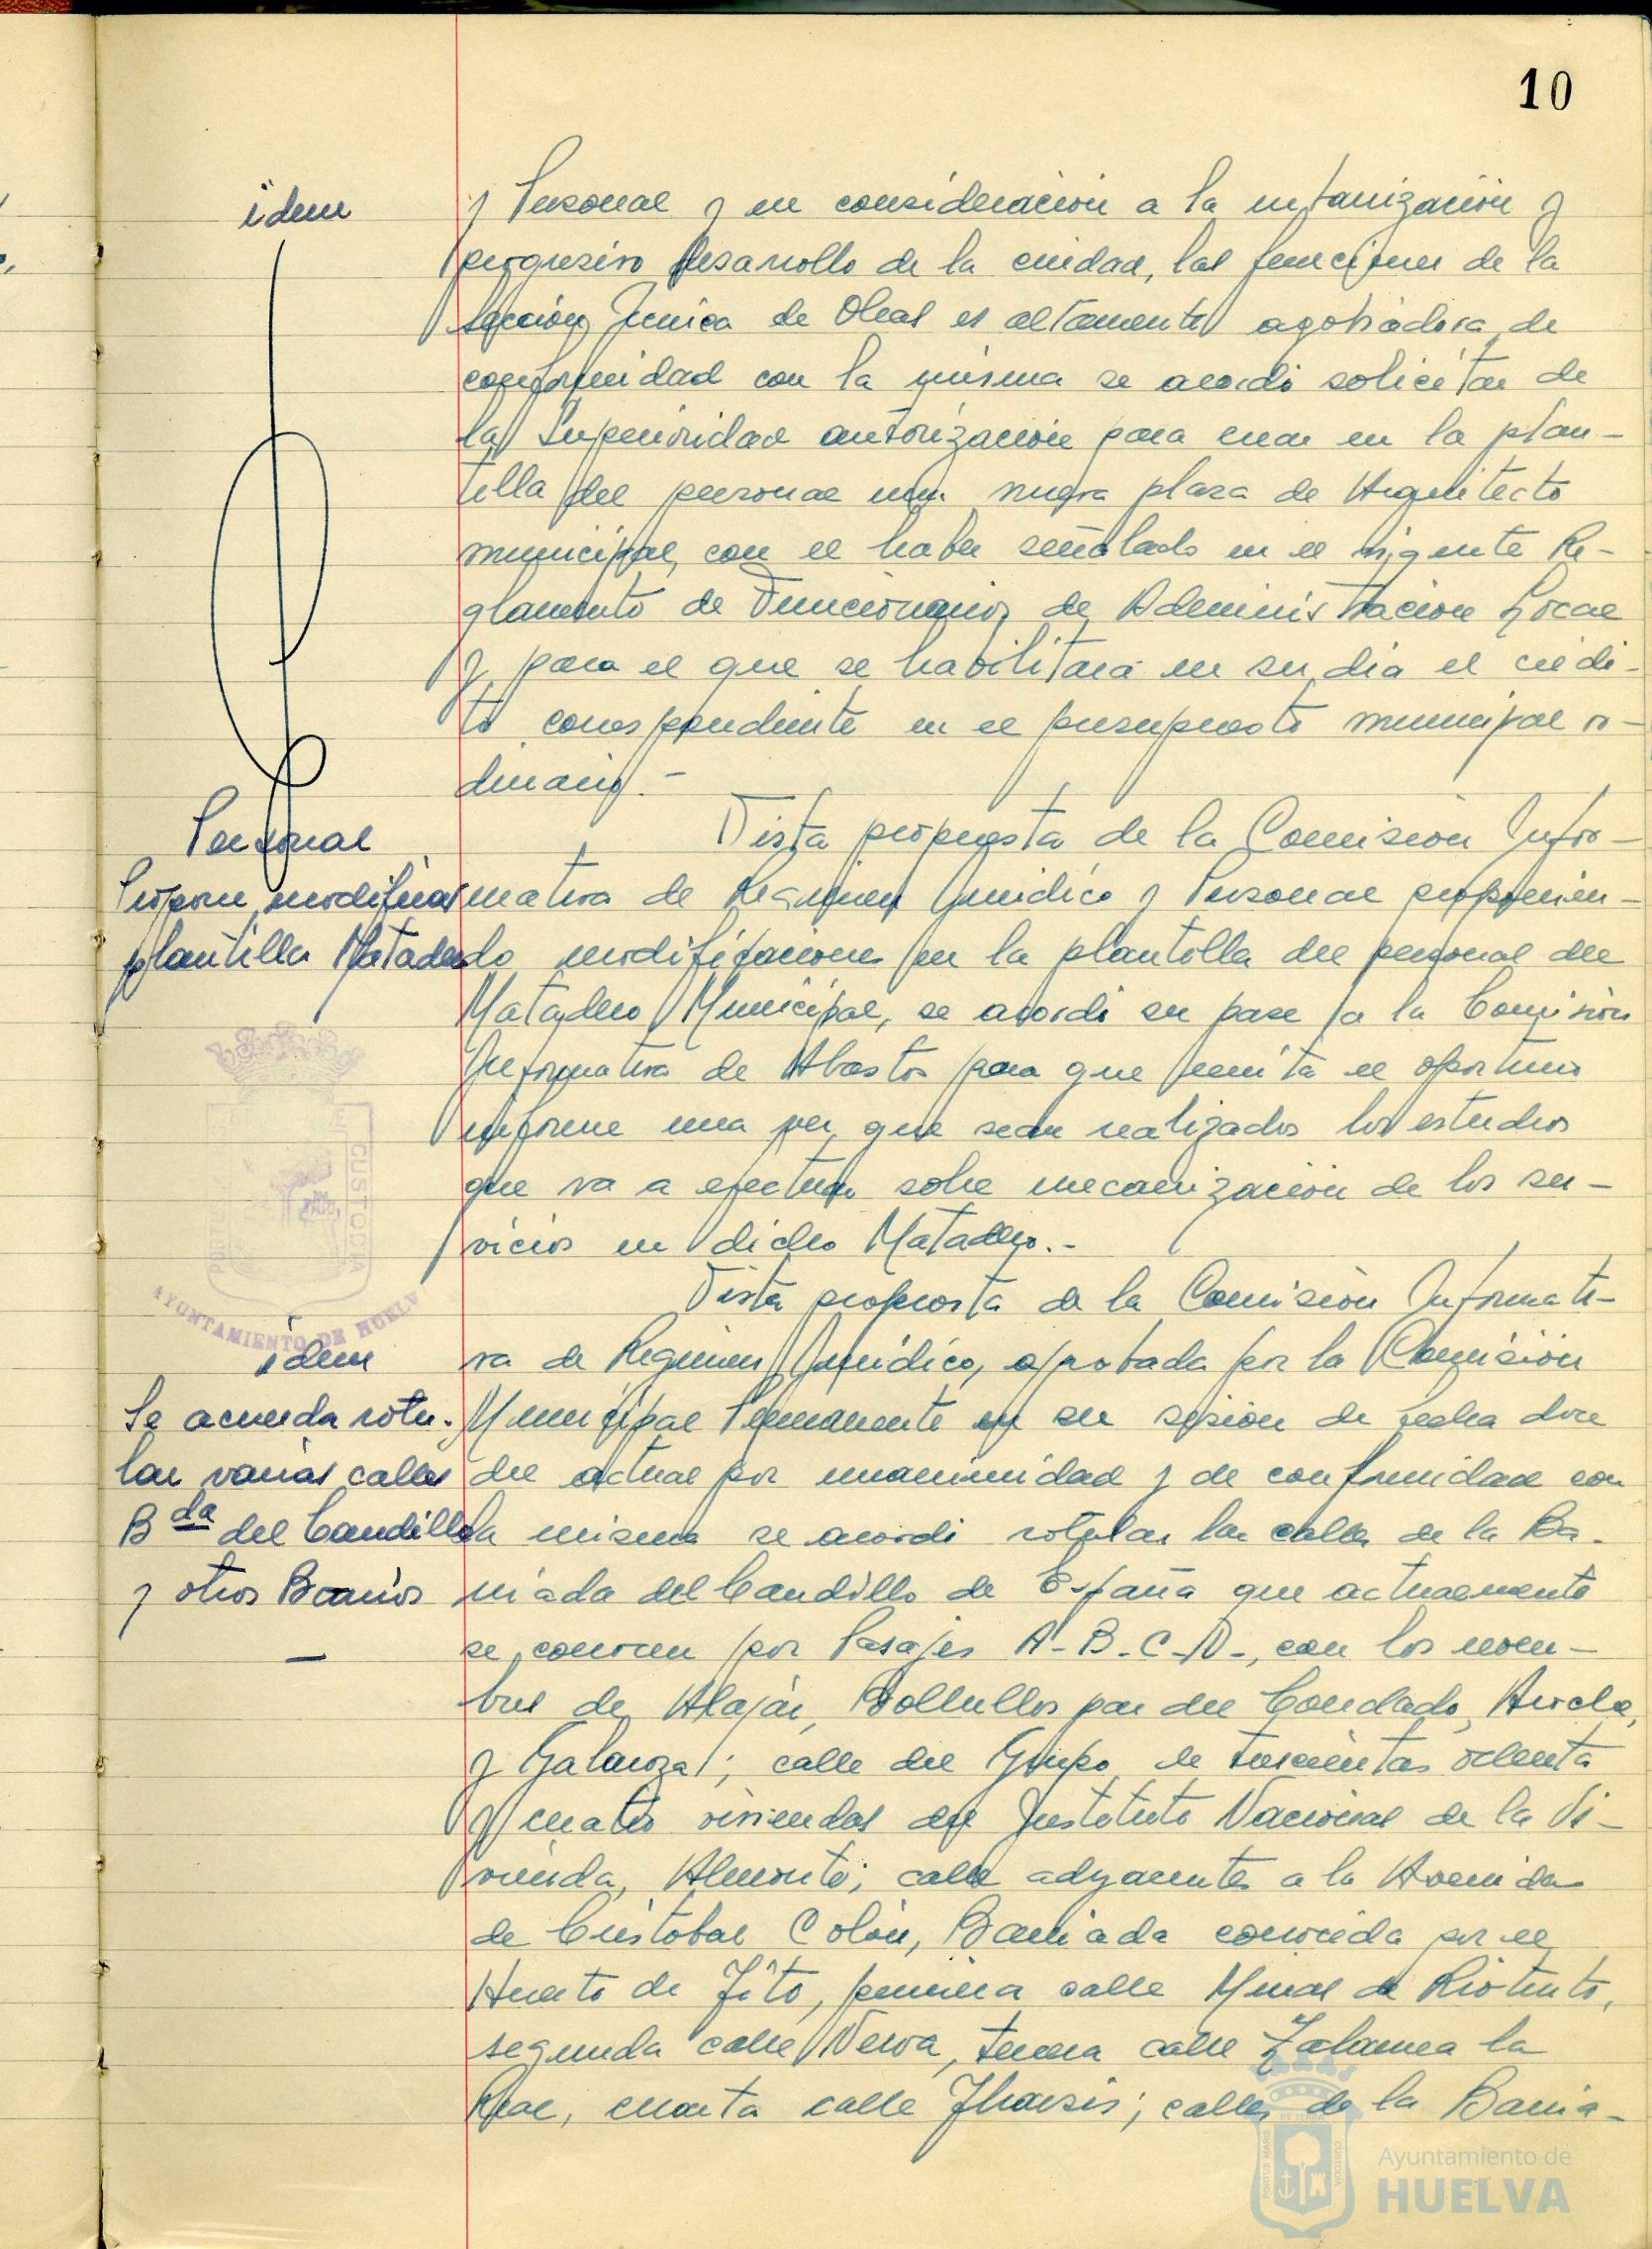 10
idem
y Personal y en consideración a la urbanización y
progresivo desarrollo de la ciudad, las funciones de la
Sección Tecnica de Obras es altamente agobiadora, de
conformidad con la misma se acordó solicitar de
la Superioridad autorización para crear en la plan-
tilla del personal una nueva plaza de Arquitecto
municipal, con el haber señalado en el vigente Re-
glamento de Funcionarios de Administracion Local
y para el que se habilitará en su dia el crédi-
to correspondiente en el presupuesto municipal or-
dinario.-
Personal
Propone modificar
plantilla Matadero
Vista propuesta de la Comisión Infor-
mativa de Regimen Juridico y Personal proponien-
do modificaciones en la plantilla del personal del
Matadero Municipal, se acordó su pase a la Comisión
Informativa de Abastos para que emita el oportuno
informe una vez que sean realizados los estudios
que va a efectuar sobre mecanización de los ser-
vicios en dicho Matadero.-
PORTUS CUSTODIA
AYUNTAMIENTO DE HUELVA
idem
Se acuerda rotu-
lar varias calles
Bda del Caudillo
y otros Barrios
Vista propuesta de la Comisión Informati-
va de Regimen Juridico, aprobada por la Comisión
Municipal Permanente en su sesión de fecha doce
del actual por unanimidad y de conformidad con
la misma se acordó rotular las calles de la Ba-
rriada del Caudillo de España que actualmente
se conocen por Pasajes A-B-C-D-, con los nom-
bres de Alajar, Bollullos par del Condado, Aroche,
y Galaroza; calle del Grupo de trescientas ochenta
y cuatro viviendas del Instituto Nacional de la Vi-
vienda, Almonte; calles adyacentes a la Avenida
de Cristobal Colón, Barriada conocida por el
Huerto de Tito, primera calle Minas de Riotinto,
segunda calle Nerva, tercera calle Zalamea la
Real, cuarta calle Tharsis; calles de la Barria-
Ayuntamiento de
HUELVA